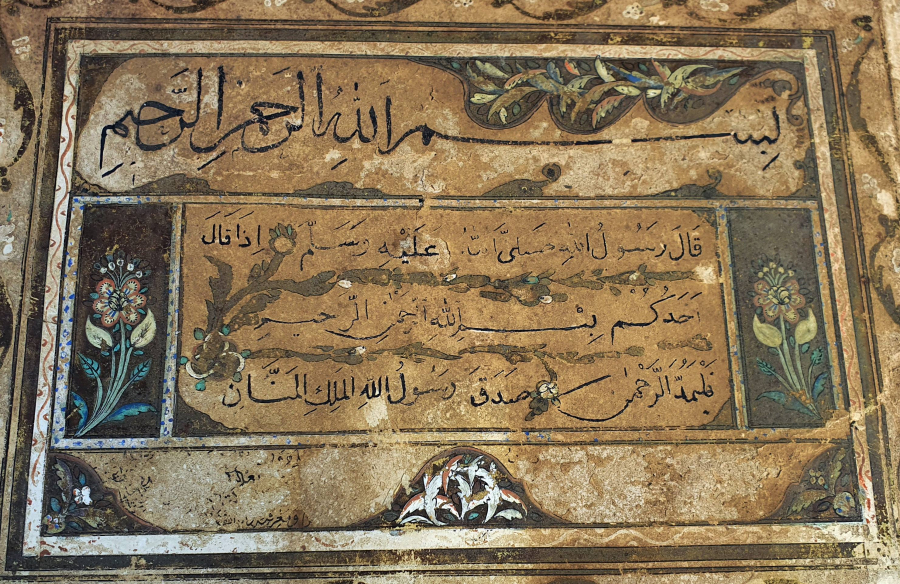 بِسْمِ اللهِ الرَّحْمٰنِ الرَّحِيْمِ
قَالَ رَسُولُ اللهِ صَلَّى اللهُ عَلَيْهِ وَسَلَّمَ اِذَا قَالَ
اَحَدُكُمْ بِسْمِ اللهِ الرَّحْمٰنِ الرَّحِيمِ
فَلْيَمُدَّ الرَّحْمٰنَ صَدَقَ رَسُولُ اللهِ المَلِكِ المَنَّانِ